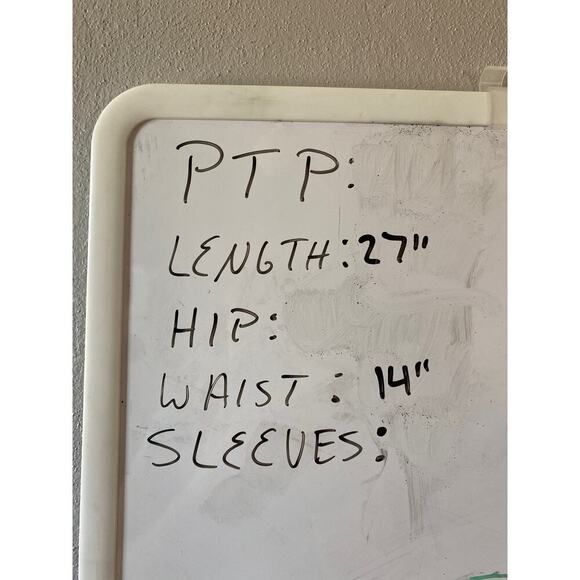 PTP:
LENGTH: 27"
HIP:
WAIST: 14"
SLEEVES: